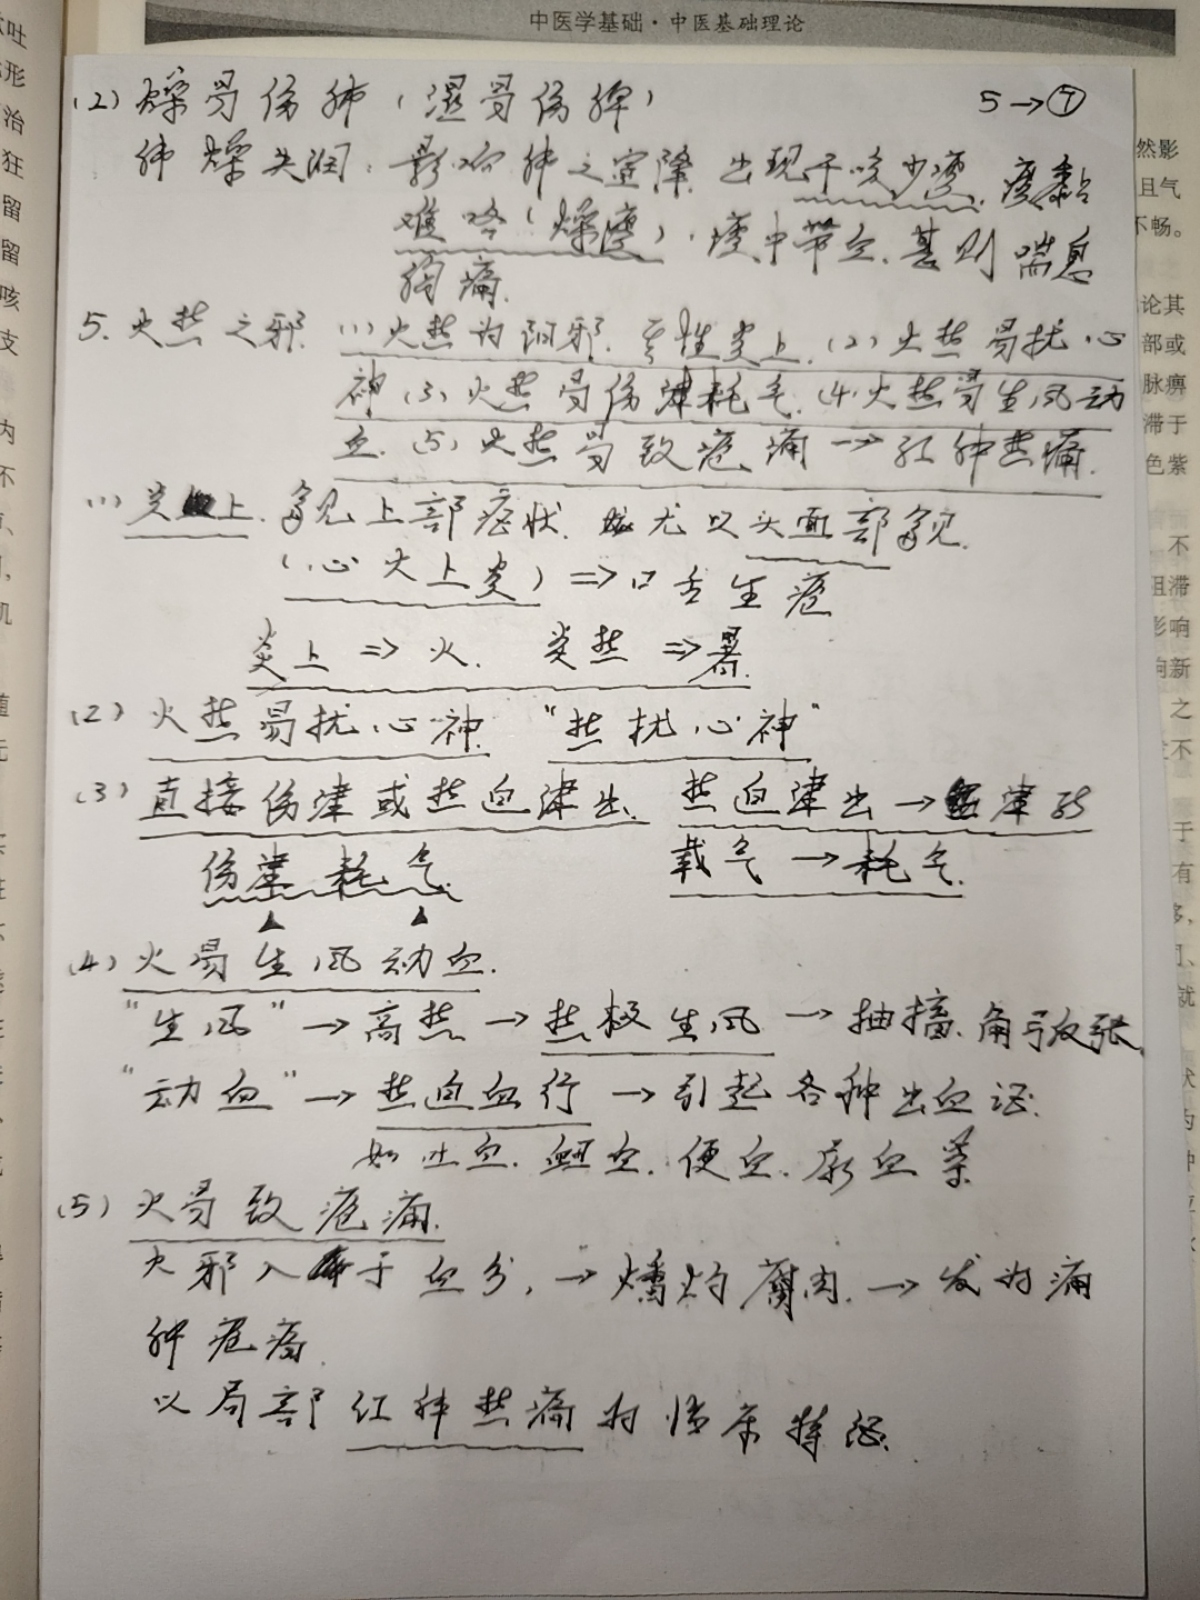 中医学基础·中医基础理论
(2) 燥易伤肺(湿易伤脾) 5→⑦
肺燥失润,影响肺之宣降.出现干咳少痰.痰黏
难咯(燥痰),痰中带血.甚则喘息
胸痛.
5.火热之邪.(1)火热为阳邪.其性炎上.(2)火热易扰心
神(3)火热易伤津耗气.(4)火热易生风动
血.(5)火热易致疮痈→红肿热痛.
(1)炎上.多见上部症状.尤以头面部多见.
(心火上炎)⇒口舌生疮
炎上⇒火. 炎热⇒暑.
(2)火热易扰心神."热扰心神"
(3)直接伤津或热迫津出. 热迫津出→津能
伤津耗气. 载气→耗气.
(4)火易生风动血.
"生风"→高热→热极生风→抽搐.角弓反张
"动血"→热迫血行→引起各种出血证.
如吐血.衄血.便血.尿血等
(5)火易致疮痈.
火邪入于血分,→燔灼腐肉.→发为痈
肿疮疡
以局部红肿热痛为临床特征.
吐
形
治
狂
留
留
咳
支
内
不
然影
且气
不畅。
论其
部或
脉痹
滞于
色紫
不
阻滞
影响
响新
之
不
于
有
就